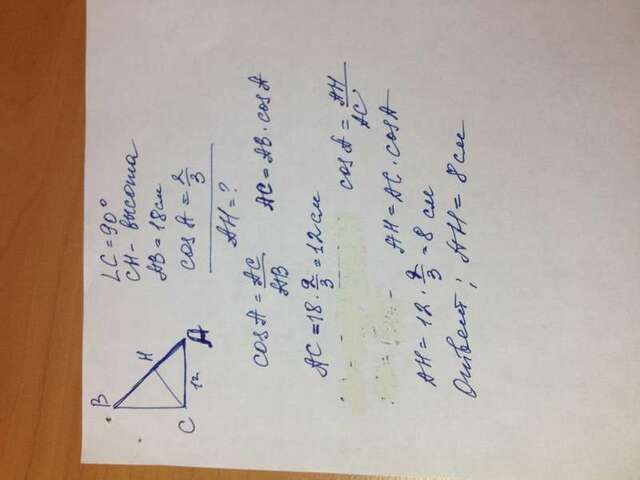 B
H
C
A
12
∠C=90°
CH- высота
AB=18см
cosA=2/3
AH=?
cosA=AC/AB AC=AB·cosA
AC=18·2/3=12см cosA=AH/AC
AH=AC·cosA
AH=12·2/3=8 см
Ответ; AH=8см